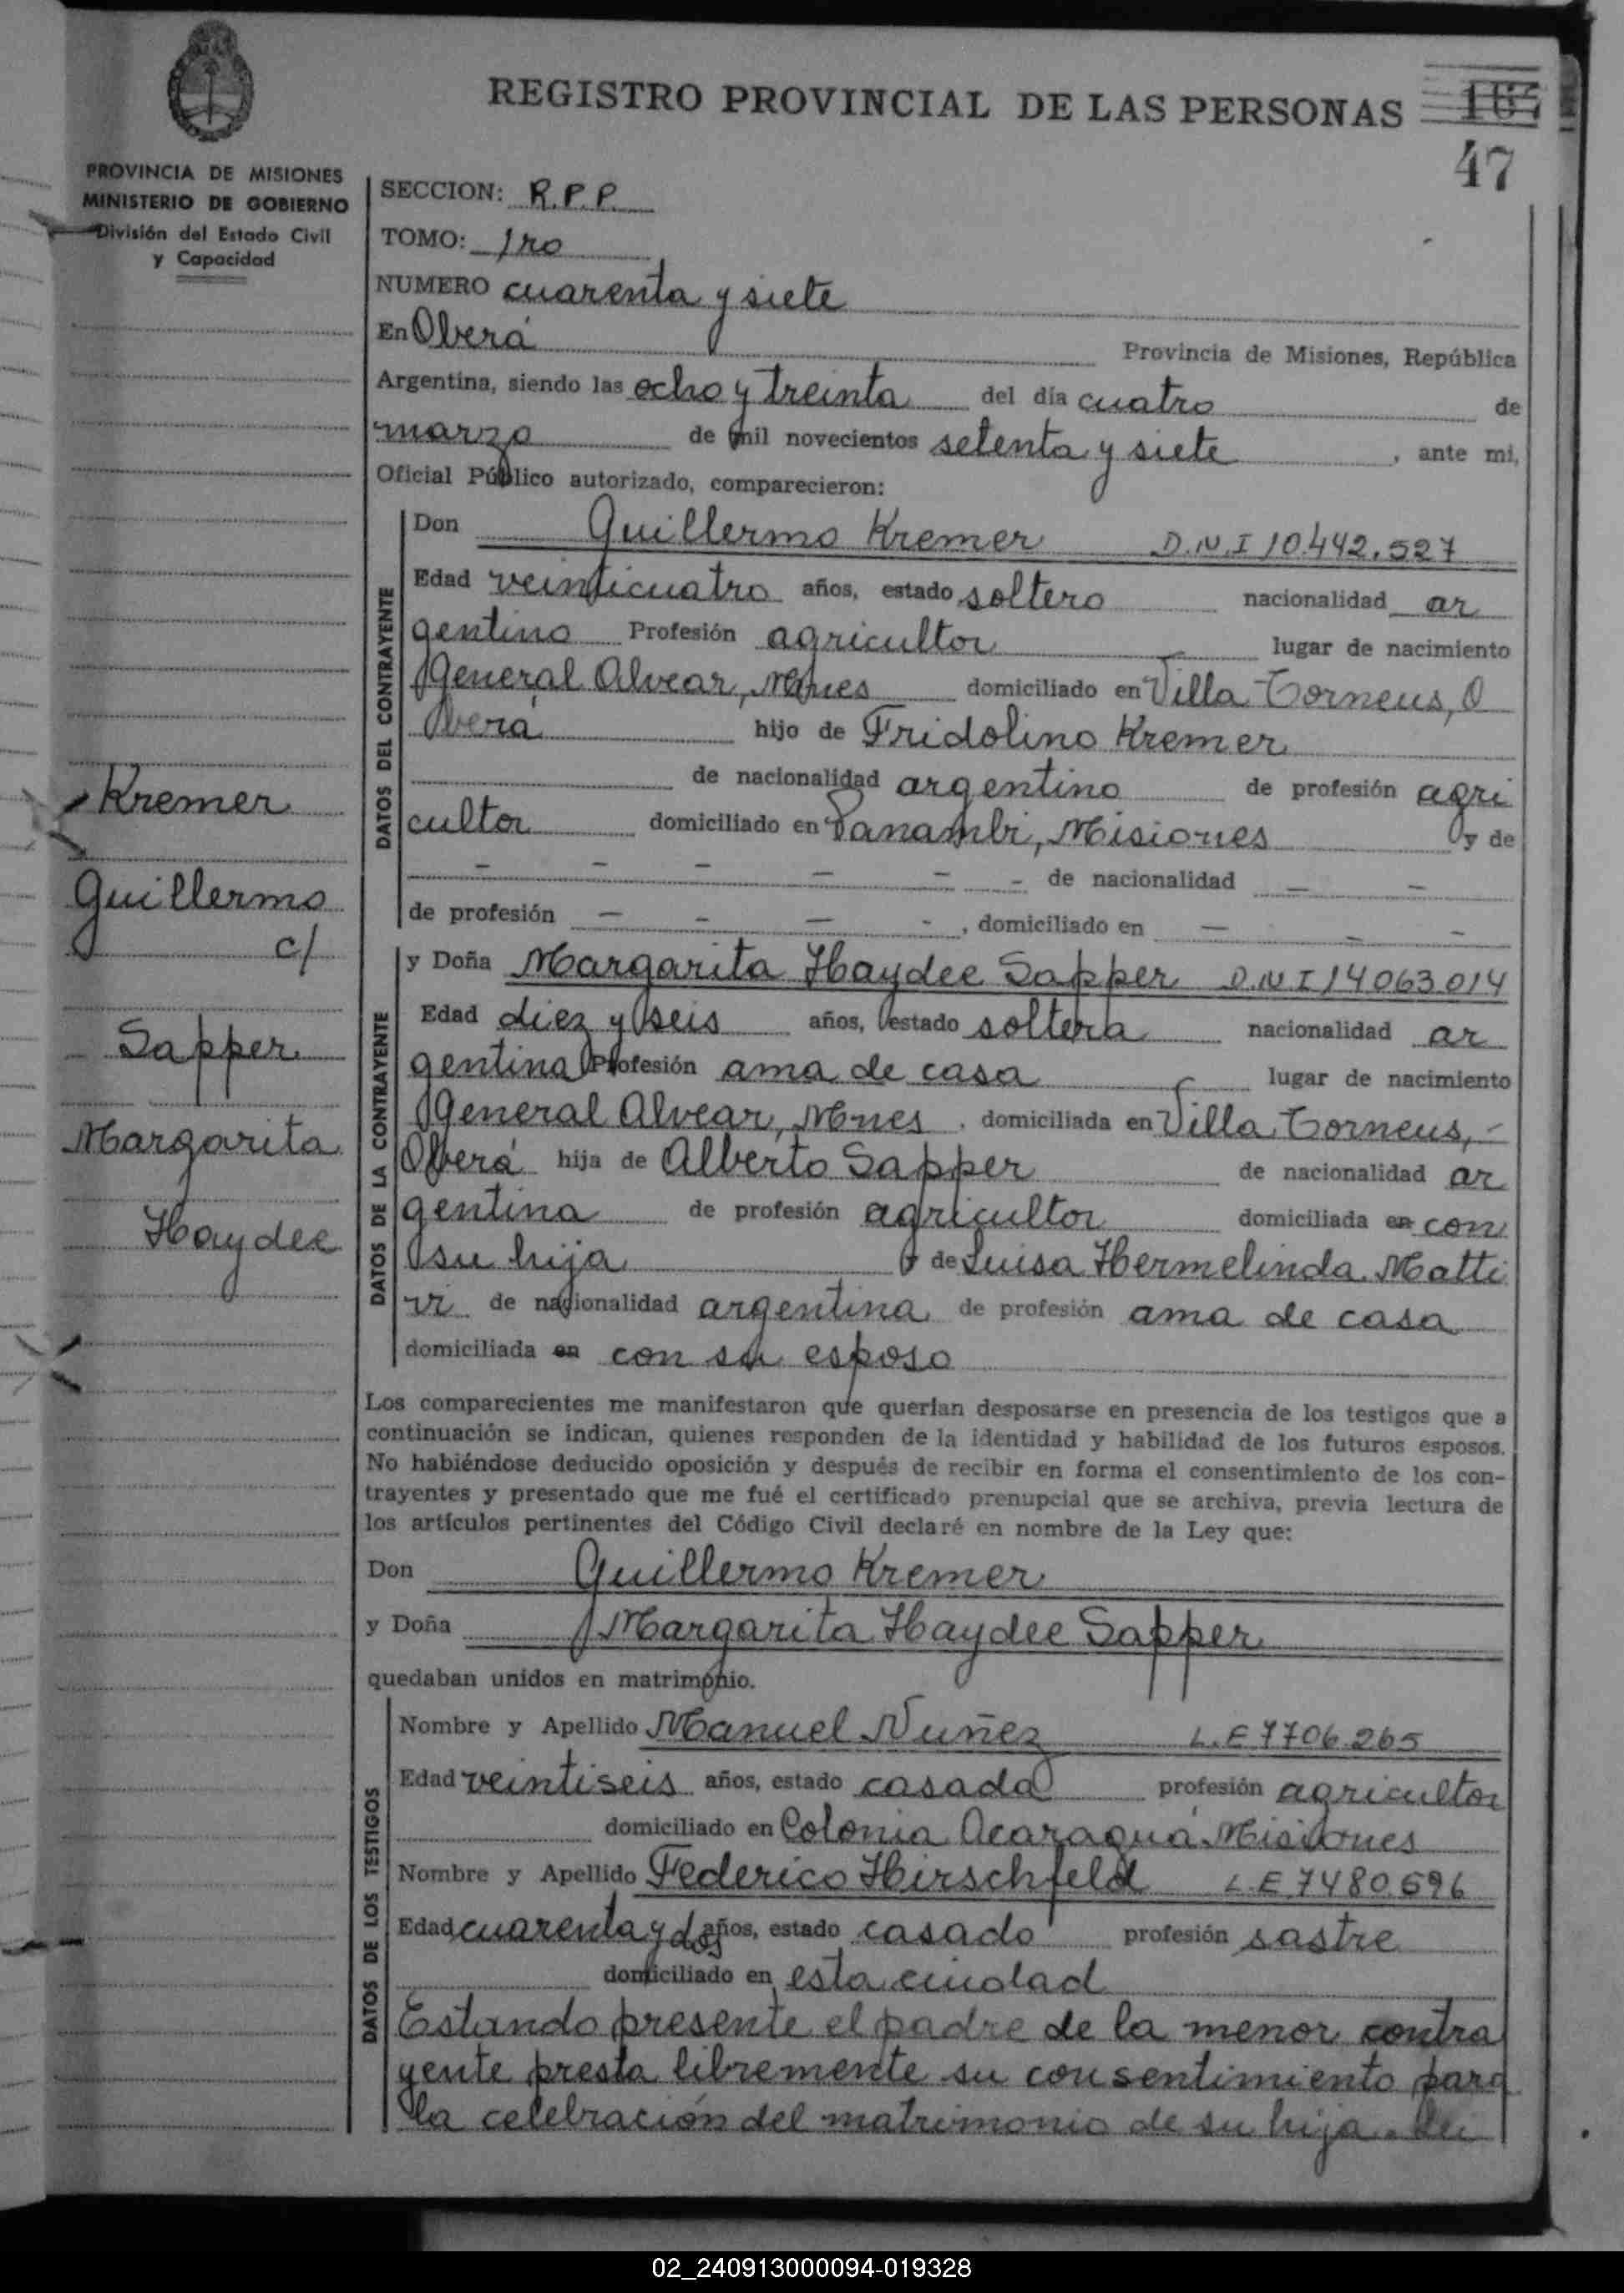 REGISTRO PROVINCIAL DE LAS PERSONAS
47
PROVINCIA DE MISIONES
MINISTERIO DE GOBIERNO
División del Estado Civil
y Capacidad
SECCION: R.P.P.
TOMO: 1ro
NUMERO cuarenta y siete
En Oberá Provincia de Misiones, República
Argentina, siendo las ocho y treinta del día cuatro de
marzo de mil novecientos setenta y siete, ante mi,
Oficial Público autorizado, comparecieron:
DATOS DEL CONTRAYENTE
Don Guillermo Kremer D.N.I 10.442.527
Edad veinticuatro años, estado soltero nacionalidad ar
gentino Profesión agricultor lugar de nacimiento
General Alvear, Mnes domiciliado en Villa Torneus, O
berá hijo de Fridolino Kremer
de nacionalidad argentino de profesión agri
cultor domiciliado en Panambi, Misiones y de
- - - - - - de nacionalidad - -
de profesión - - - -, domiciliado en - - -
Kremer
Guillermo
c/
Sapper
Margarita
Haydee
DATOS DE LA CONTRAYENTE
y Doña Margarita Haydee Sapper D.N.I 14.063.014
Edad diez y seis años, estado soltera nacionalidad ar
gentina Profesión ama de casa lugar de nacimiento
General Alvear, Mnes. domiciliada en Villa Torneus, -
Oberá hija de Alberto Sapper de nacionalidad ar
gentina de profesión agricultor domiciliada en con
su hija y de Luisa Hermelinda Matti
vi de nacionalidad argentina de profesión ama de casa
domiciliada en con su esposo
Los comparecientes me manifestaron que querían desposarse en presencia de los testigos que a
continuación se indican, quienes responden de la identidad y habilidad de los futuros esposos.
No habiéndose deducido oposición y después de recibir en forma el consentimiento de los con-
trayentes y presentado que me fué el certificado prenupcial que se archiva, previa lectura de
los artículos pertinentes del Código Civil declaré en nombre de la Ley que:
Don Guillermo Kremer
y Doña Margarita Haydee Sapper
quedaban unidos en matrimonio.
DATOS DE LOS TESTIGOS
Nombre y Apellido Manuel Nuñez L.E 7706.265
Edad veintiseis años, estado casado profesión agricultor
domiciliado en Colonia Acaragua Misiones
Nombre y Apellido Federico Hirschfeld L.E 7480.696
Edad cuarenta y dos años, estado casado profesión sastre
domiciliado en esta ciudad
Estando presente el padre de la menor contra
yente presta libremente su consentimiento para
la celebración del matrimonio de su hija. Lei
02_240913000094-019328